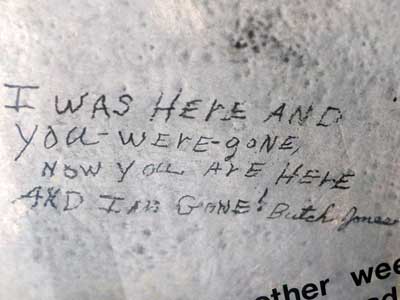 I WAS HErE AND
YOU-WErE-gONE,
NOW YOU ArE HErE
AND I AM GONE! Butch Jones
other wee